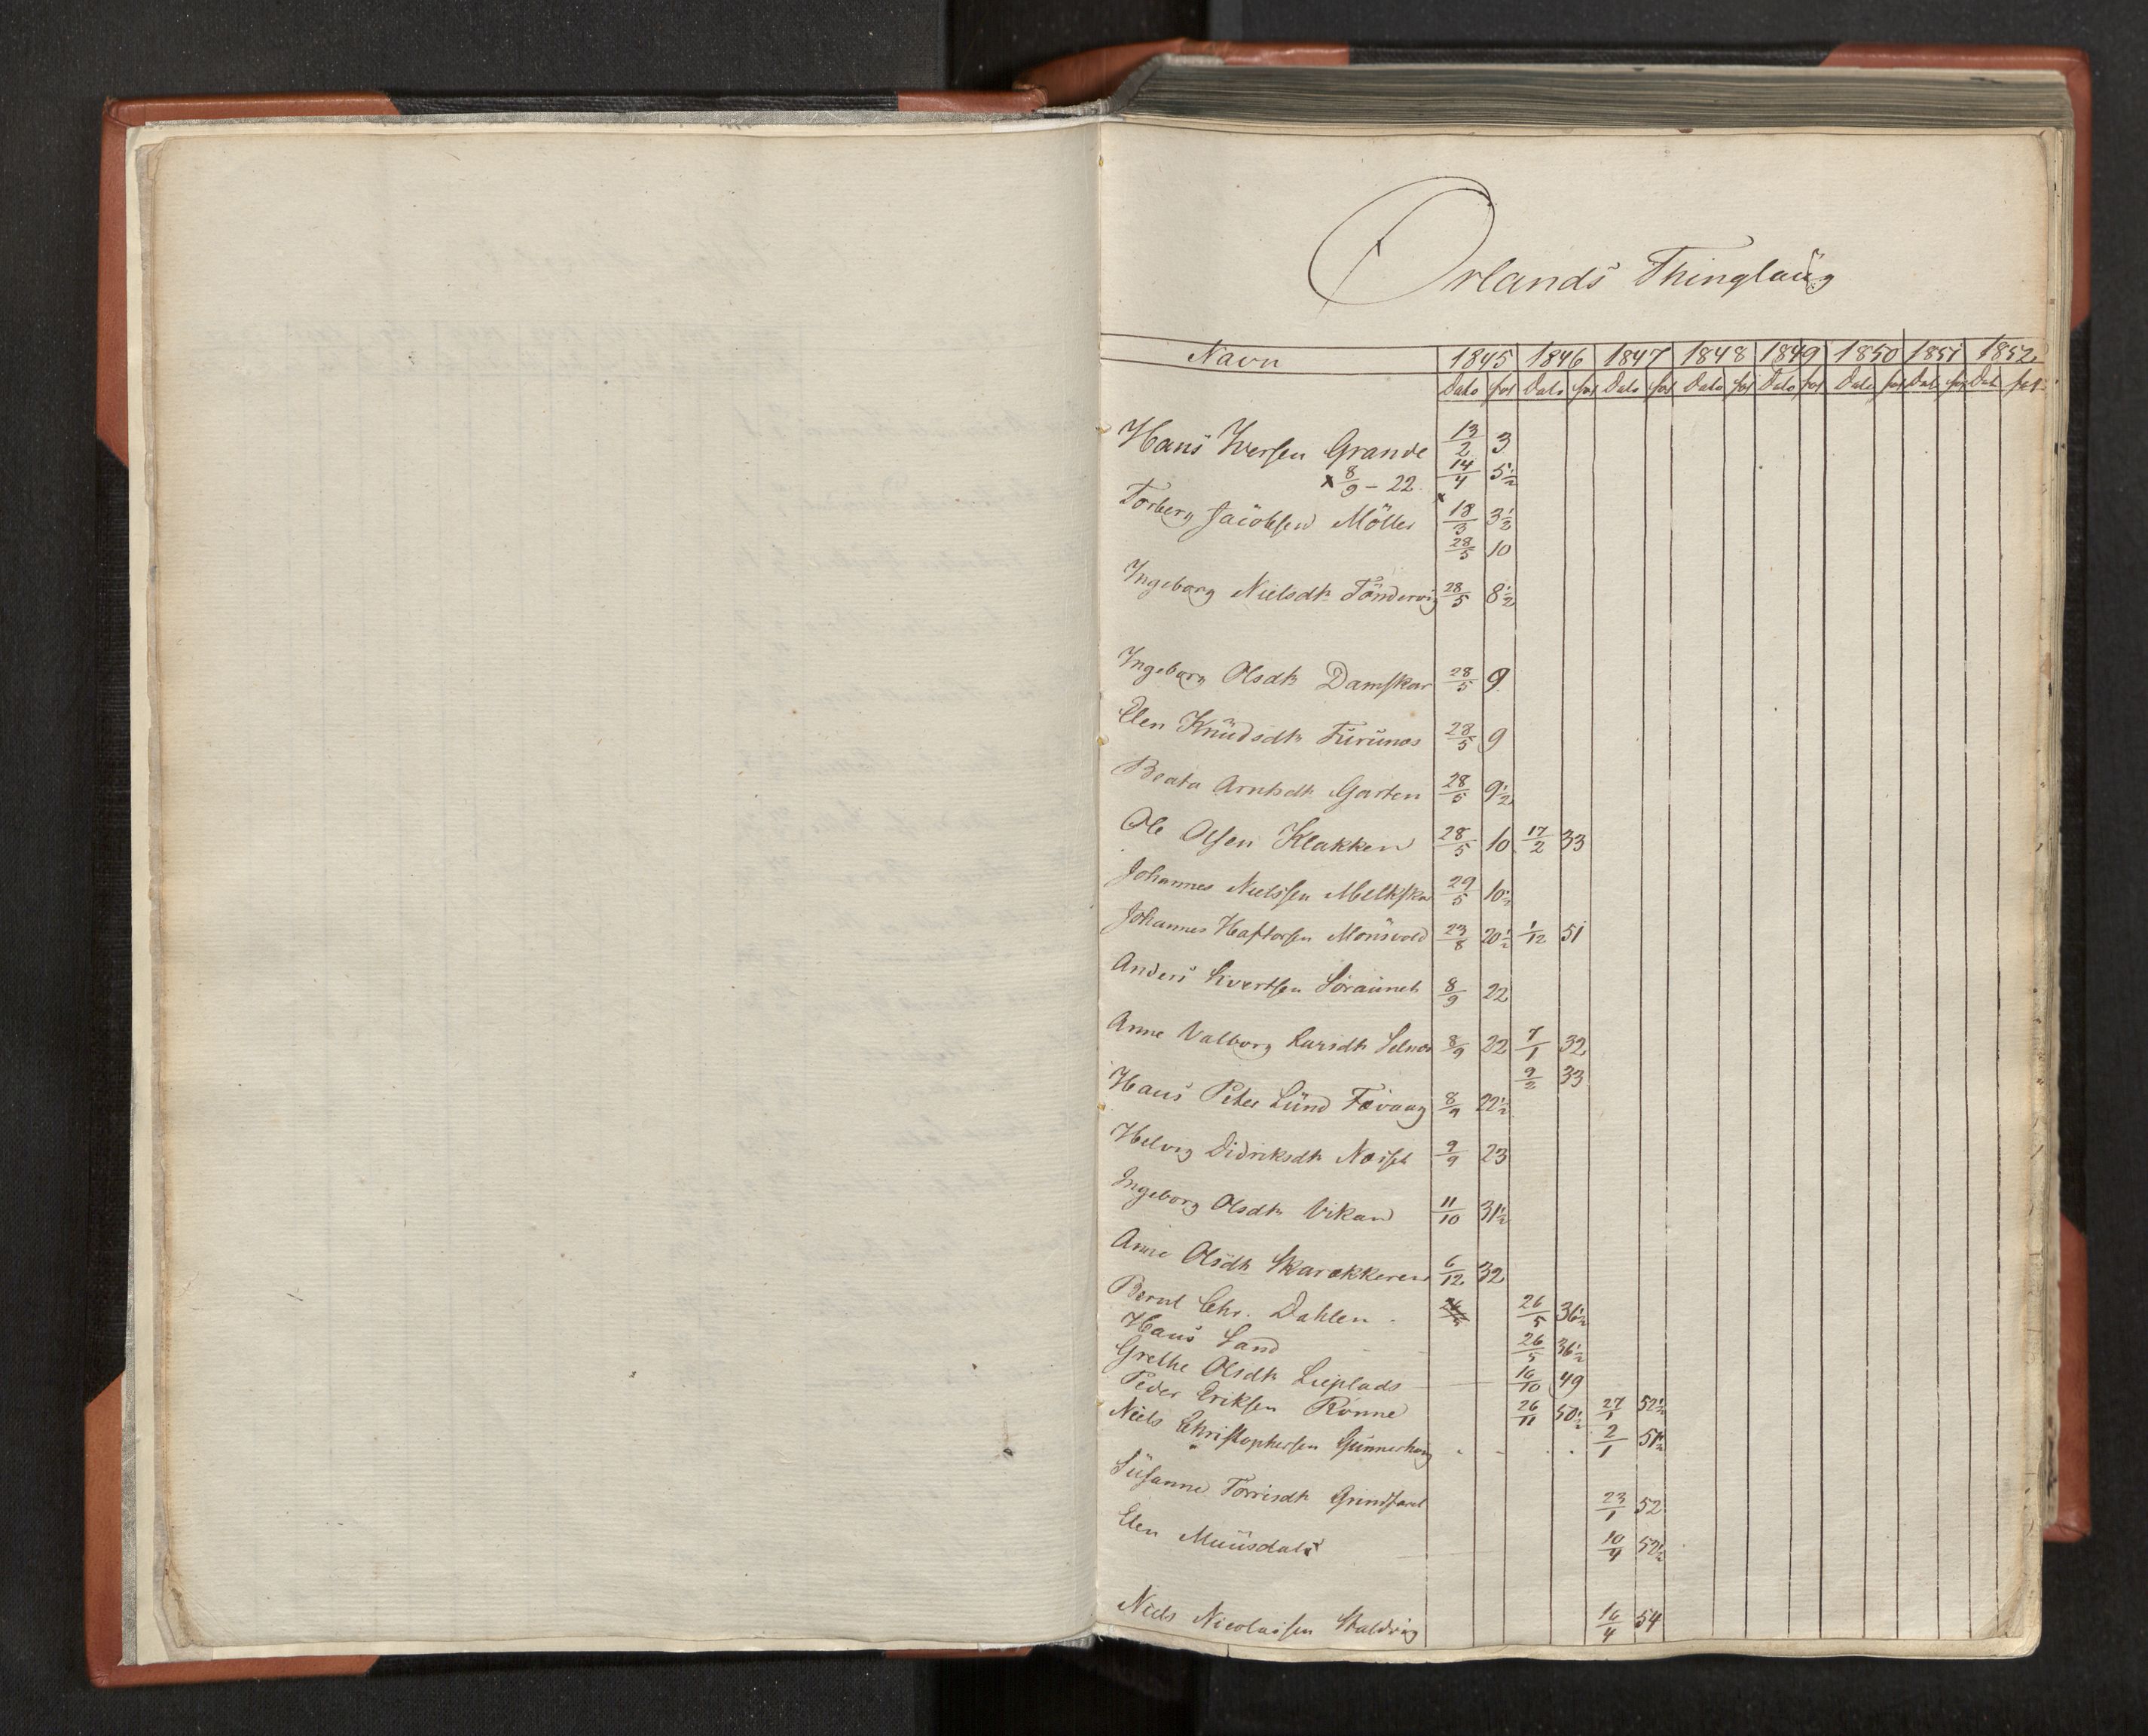 Ørlands Thinglaug
Navn 1845 1846 1847 1848 1849 1850 1851 1852
Dato fol Dato fol Dato fol Dato fol Dato fol Dato fol Dat fol Dat fol
Hans Iversen Grande 13/2 3
x 8/9 - 22 14/4 5½
Torberg Jacobsen Möller x 18/3 3½
28/5 10
Ingeborg Nielsdtr Töndervig 28/5 8½
Ingeborg Olsdtr Damskar 28/5 9
Elen Knudsdtr Furunes 28/5 9
Beata Arntsdtr Garten 28/5 9½
Ole Olsen Klakken 28/5 10 17/2 33
Johannes Nielssen Melkskar 29/5 10½
Johannes Haftorsen Mönsvold 23/8 20½ 1/12 51
Anders Sivertsen 8/9 22
Anne Valborg Larsdtr Selnes 8/9 22 7/1 32
9/2 33
Hans Peter Lund Fevaag 8/9 22½
Helvig Didriksdtr Næsset 9/9 23
Ingeborg Olsdtr Vikan 11/10 31½
Anne Olsdtr Skarakkeren 6/12 32
Bernt Chr. Dahlen 26/5 36½
Hans Sand 26/5 36½
Grethe Olsdtr Lieplads 16/10 49
Peder Eriksen Rönne 26/11 50½ 27/1 52½
Niels Christophersen Gunnerhaug 2/1 51½
Susanne Torrisdtr 23/1 52
Elen Muusdal 10/4 52½
Niels Nicolaisen Skaldvig 16/4 54